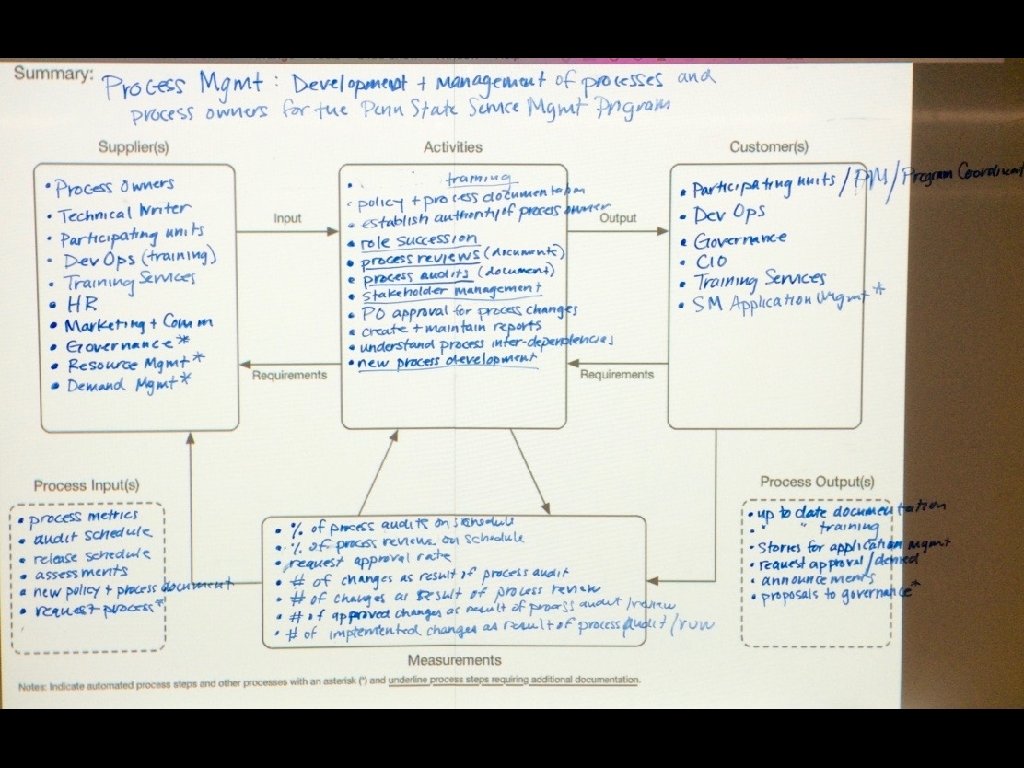 Summary: Process Mgmt : Development + management of processes and
process owners for the Penn State Service Mgmt Program
Supplier(s)
• Process Owners
• Technical Writer
• Participating units
• DevOps (training)
• Training Services
• HR
• Marketing + Comm
• Governance*
• Resource Mgmt*
• Demand Mgmt*
Input
Requirements
Activities
• training
• policy + process documentation
• establish authority of process owner
• role succession
• process reviews (documents)
• process audits (document)
• stakeholder management
• PO approval for process changes
• create + maintain reports
• understand process inter-dependencies
• new process development
Output
Requirements
Customer(s)
• Participating units / PM / Program Coordinat
• Dev Ops
• Governance
• CIO
• Training Services
• SM Application Mgmt*
Process Input(s)
• process metrics
• audit schedule
• release schedule
• assessments
• new policy + process document
• request process*
• % of process audits on schedule
• % of process reviews on schedule
• request approval rate
• # of changes as result of process audit
• # of changes as result of process review
• # of approved changes as result of process audit/review
• # of implemented changes as result of process audit/
Measurements
Process Output(s)
• up to date documentation
• " training
• stories for application mgmt
• request approval/denied
• announcements
• proposals to governance*
Notes: Indicate automated process steps and other processes with an asterisk (*) and underline process steps requiring additional documentation.